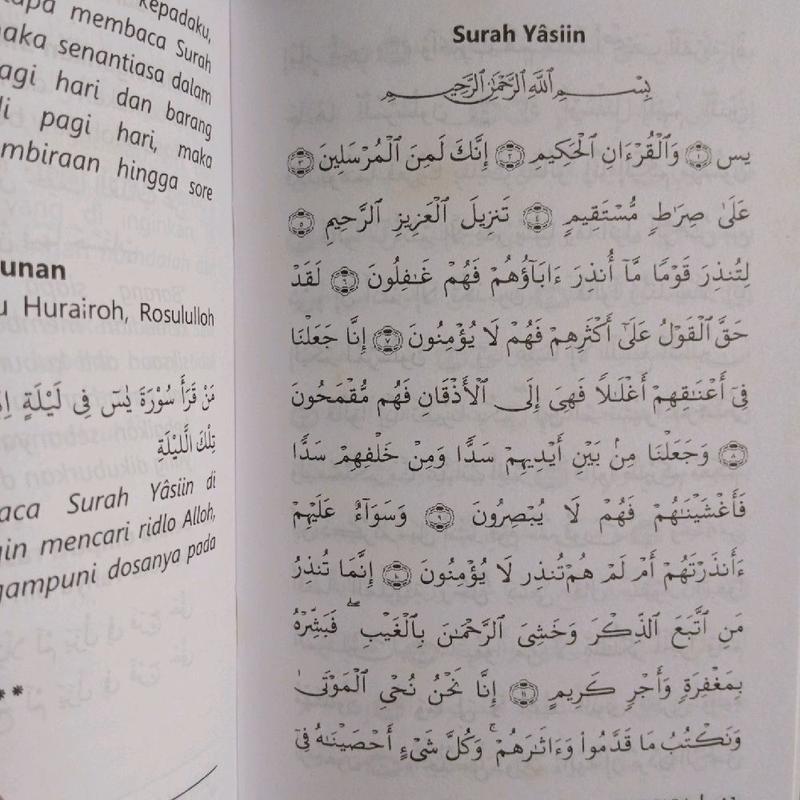 Kepadaku,
membaca Surah
maka senantiasa dalam
pagi hari dan barang
di pagi hari, maka
hingga sore
unan
Hurairoh, Rosululloh
مَنْ قَرَأَ سُوْرَةَ يٰسٓ فِى لَيْلَةٍ
تِلْكَ الَّليْلَةِ
aca Surah Yâsiin di
gin mencari ridlo Alloh,
gampuni dosanya pada
**
Surah Yâsiin
بِسْمِ ٱللَّهِ ٱلرَّحْمَٰنِ ٱلرَّحِيمِ
يسٓ ﴿١﴾ وَٱلْقُرْءَانِ ٱلْحَكِيمِ ﴿٢﴾ إِنَّكَ لَمِنَ ٱلْمُرْسَلِينَ ﴿٣﴾
عَلَىٰ صِرَٰطٍ مُّسْتَقِيمٍ ﴿٤﴾ تَنزِيلَ ٱلْعَزِيزِ ٱلرَّحِيمِ ﴿٥﴾
لِتُنذِرَ قَوْمًا مَّآ أُنذِرَ ءَابَآؤُهُمْ فَهُمْ غَٰفِلُونَ ﴿٦﴾ لَقَدْ
حَقَّ ٱلْقَوْلُ عَلَىٰٓ أَكْثَرِهِمْ فَهُمْ لَا يُؤْمِنُونَ ﴿٧﴾ إِنَّا جَعَلْنَا
فِىٓ أَعْنَٰقِهِمْ أَغْلَٰلًا فَهِىَ إِلَى ٱلْأَذْقَانِ فَهُم مُّقْمَحُونَ
﴿٨﴾ وَجَعَلْنَا مِنۢ بَيْنِ أَيْدِيهِمْ سَدًّا وَمِنْ خَلْفِهِمْ سَدًّا
فَأَغْشَيْنَٰهُمْ فَهُمْ لَا يُبْصِرُونَ ﴿٩﴾ وَسَوَآءٌ عَلَيْهِمْ
ءَأَنذَرْتَهُمْ أَمْ لَمْ هُمْ تُنذِر لَا يُؤْمِنُونَ ﴿١٠﴾ إِنَّمَا تُنذِرُ
مَنِ ٱتَّبَعَ ٱلذِّكْرَ وَخَشِىَ ٱلرَّحْمَٰنَ بِٱلْغَيْبِ ۖ فَبَشِّرْهُ
بِمَغْفِرَةٍ وَأَجْرٍ كَرِيمٍ ﴿١١﴾ إِنَّا نَحْنُ نُحْىِ ٱلْمَوْتَىٰ
وَنَكْتُبُ مَا قَدَّمُوا۟ وَءَاثَٰرَهُمْ ۚ وَكُلَّ شَىْءٍ أَحْصَيْنَٰهُ فِىٓ